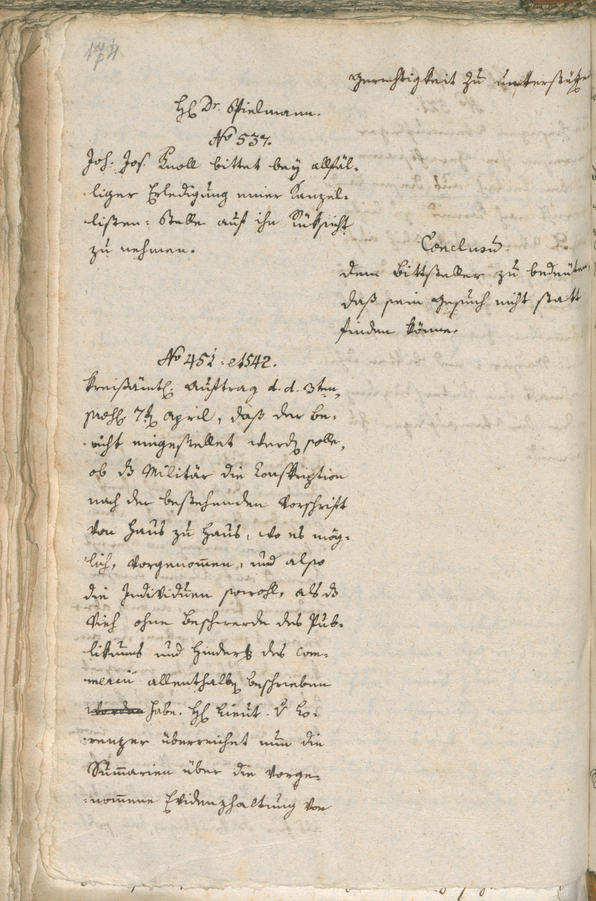 174
gerechtigkeit zu unterstüzen
H. Dr. Spielmann.
No 537.
Joh. Jos. Knoll bittet bey allfäl-
liger Erledigung einer Kanzel-
listen-Stelle auf ihn Rüksicht
zu nehmen.
Conclusum.
dem Bittsteller zu bedeuten,
daß sein Gesuch nicht statt
finden könne.
No 451 : et 542.
Kreisämtl. Auftrag d. d. 3ten
7t April, daß der Be-
richt eingestellet werde solle,
ob ds Militär die Konskription
nach der bestehenden Vorschrift
von Haus zu Haus, wo es mög-
lich, vorgenommen, und also
die Individuen sowohl, als ds
Vieh ohne Beschwerde des Pub-
likums und Hinderß des Com-
mercii allenthalben beschrieben
worden habe. H. Lieut. v Lo-
renzer überreichet nun die
Summarien über die vorge-
nommene Evidenzhaltung von